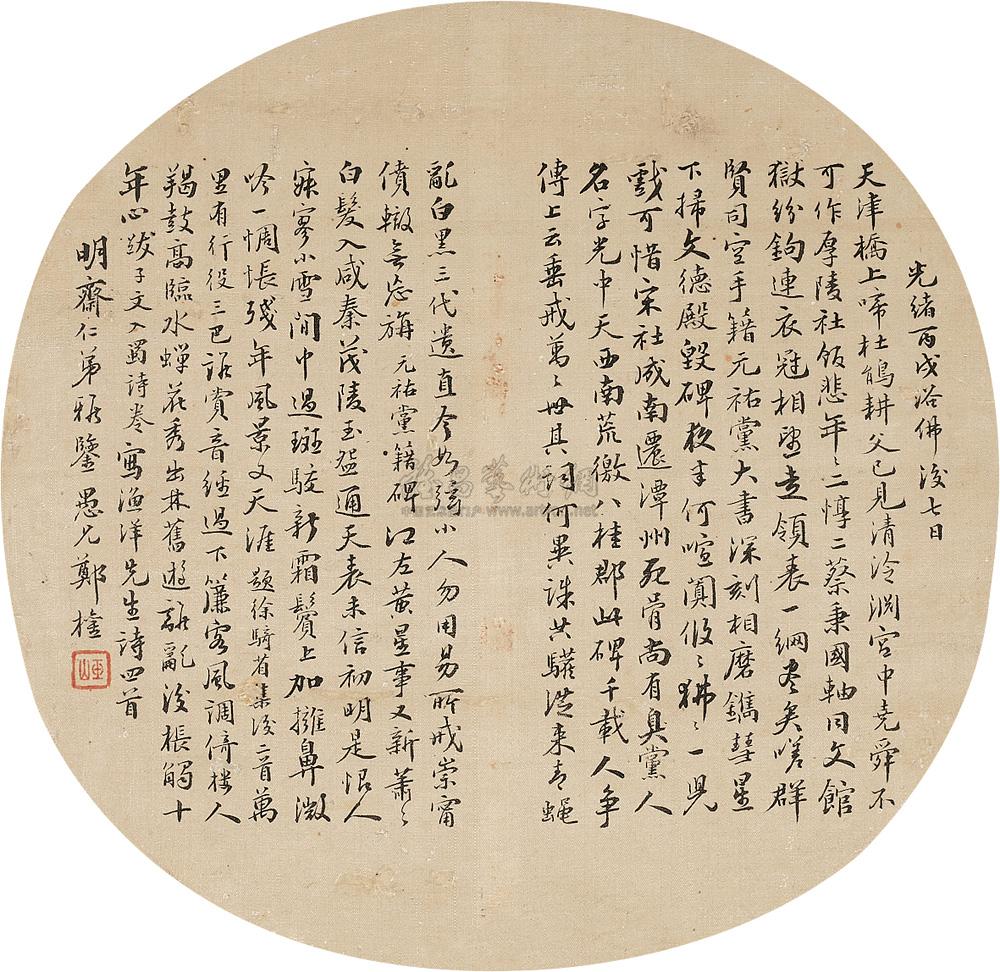 光緒丙戌浴佛後七日
天津橋上啼杜鵑耕父已見清泠淵宮中堯舜不
可作厚陵社飯悲年〻二惇二蔡秉國軸同文館
獄紛鉤連衣冠相望走領表一網盡矣嗟群
賢司空手籍元祐黨大書深刻相磨鐫彗星
下掃文德殿毀碑敕書何喧闐假〻狒〻一兒
戲可惜宋社成南遷潭州死骨尚有臭黨人
名字光中天西南荒徼八桂郡此碑千載人爭
傳上云垂戒萬〻世其詞何異誅共驩從來青蠅
亂白黑三代遺直今如絃小人勿用易所戒崇甯
僨轍無忘旃元祐黨籍碑江左黃星事又新蕭〻
白髮入咸秦茂陵玉盌通天表未信初明是恨人
寂寥小雪閒中過斑駮新霜鬢上加擁鼻微
吟一惆悵殘年風景又天涯題徐騎省集後二首萬
里有行役三巴諧賞音經過下簾客風調倚樓人
羯鼓高臨水蟬花秀出林舊遊離亂後棖觸十
年心跋子文入蜀詩卷寫漁洋先生詩四首
明齋仁弟雅鑒愚兄鄭